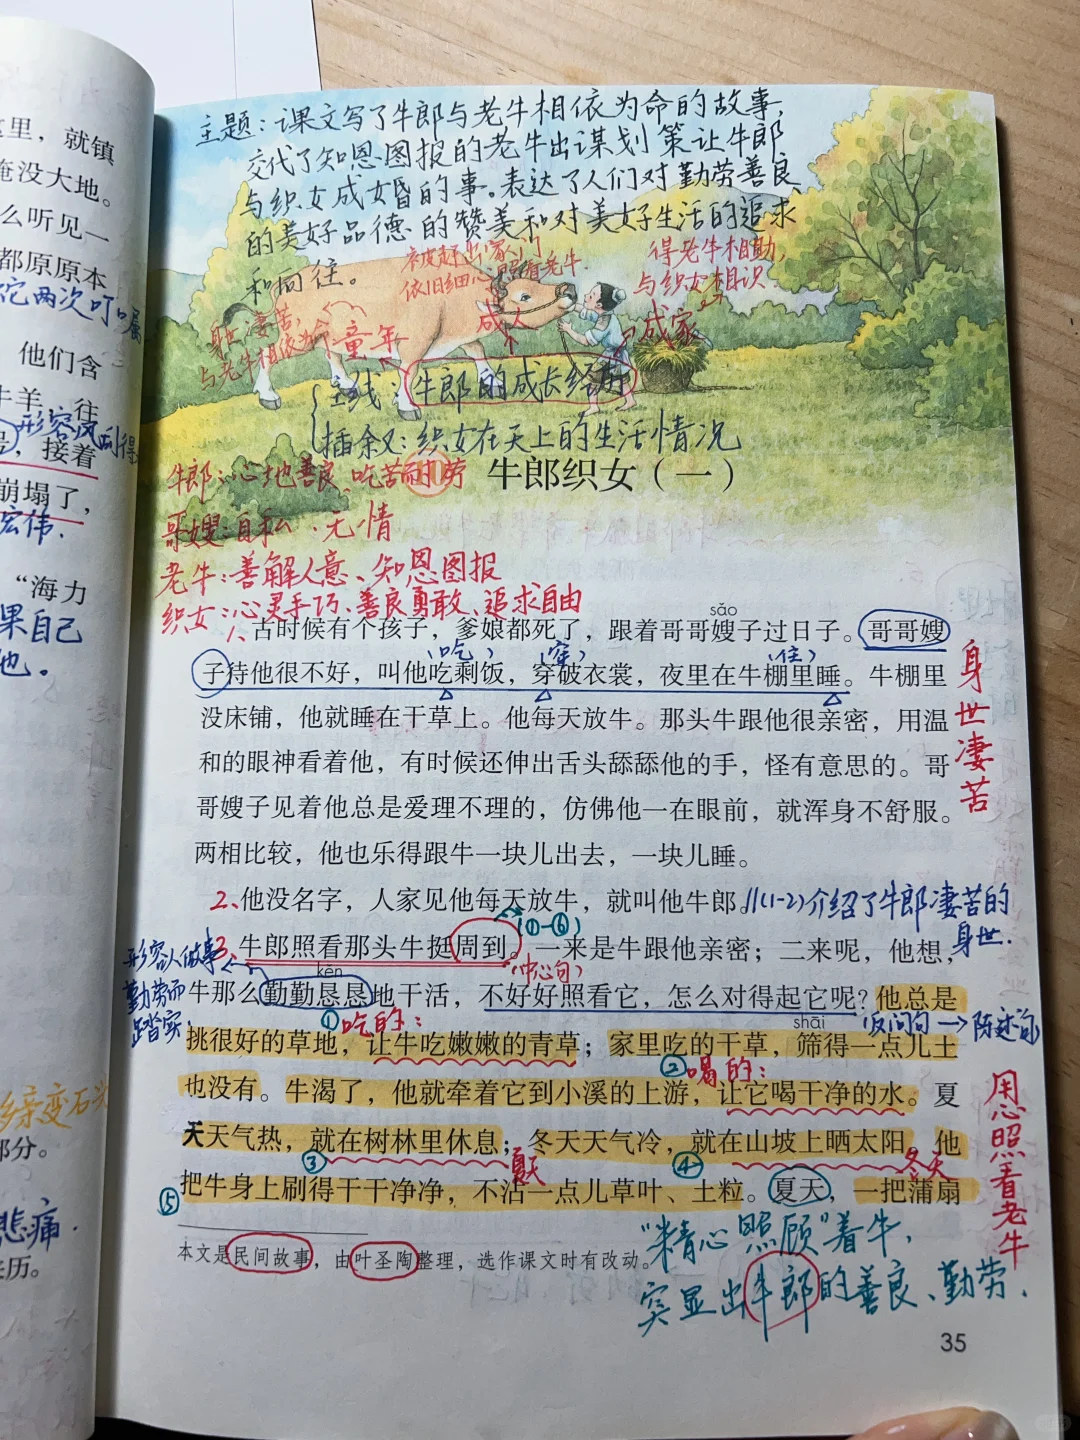 这里，就镇
淹没大地。
么听见一
都原原本
蛇两次叮嘱
他们含
牛羊，往
形容风刮得
，接着
崩塌了，
宏伟.
“海力
果自己
他。
乡亲变石头
部分。
悲痛.
来历。
主题：课文写了牛郎与老牛相依为命的故事，
交代了知恩图报的老牛出谋划策让牛郎
与织女成婚的事。表达了人们对勤劳善良
的美好品德的赞美和对美好生活的追求
和向往。
被赶出家门
依旧细心照看老牛.
得老牛相助，
与织女相识
身世凄苦，
与老牛相依为命
童年
成人
成家
主线：牛郎的成长经历
插叙：织女在天上的生活情况
牛郎：心地善良、吃苦耐劳
牛郎织女（一）
哥嫂：自私、无情
老牛：善解人意、知恩图报
织女：心灵手巧、善良勇敢、追求自由
sǎo
1、古时候有个孩子，爹娘都死了，跟着哥哥嫂子过日子。哥哥嫂
（吃）（穿）（住）
子待他很不好，叫他吃剩饭，穿破衣裳，夜里在牛棚里睡。牛棚里
没床铺，他就睡在干草上。他每天放牛。那头牛跟他很亲密，用温
和的眼神看着他，有时候还伸出舌头舔舔他的手，怪有意思的。哥
哥嫂子见着他总是爱理不理的，仿佛他一在眼前，就浑身不舒服。
两相比较，他也乐得跟牛一块儿出去，一块儿睡。
身世凄苦
2、他没名字，人家见他每天放牛，就叫他牛郎。//(1-2)介绍了牛郎凄苦的
身世.
（①-⑥）
3、牛郎照看那头牛挺周到。一来是牛跟他亲密；二来呢，他想，
（中心句）
kěn
形容人做事
勤劳而
踏实.
牛那么勤勤恳恳地干活，不好好照看它，怎么对得起它呢？他总是
①吃的：
shāi
反问句→陈述句
挑很好的草地，让牛吃嫩嫩的青草；家里吃的干草，筛得一点儿土
②喝的：
也没有。牛渴了，他就牵着它到小溪的上游，让它喝干净的水。夏
天天气热，就在树林里休息；冬天天气冷，就在山坡上晒太阳。他
③夏天
④冬天
⑤把牛身上刷得干干净净，不沾一点儿草叶、土粒。夏天，一把蒲扇
用心照看老牛
“精心照顾”着牛，
突显出牛郎的善良、勤劳.
本文是民间故事，由叶圣陶整理，选作课文时有改动。
35